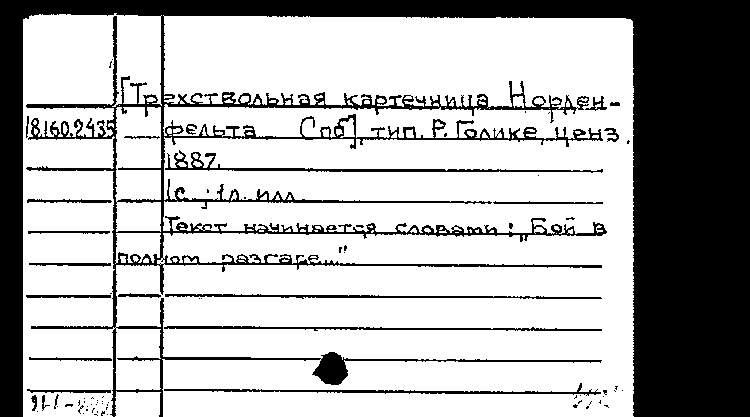 [Трехствольная картечница Норден-
18160.2435 фельта Спб], тип. Р. Голике, ценз.
1887.
1с.; 1л. илл.
Текст начинается словами: „Бой в
полном разгаре..."